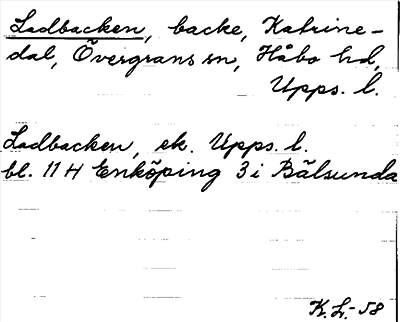 Ladbacken, backe, Katrine-
dal, Övergrans sn, Håbo hd,
Upps. l.
Ladbacken, ek. Upps. l.
bl. 11 H Enköping 3 i Bälsunda
K.L.-58